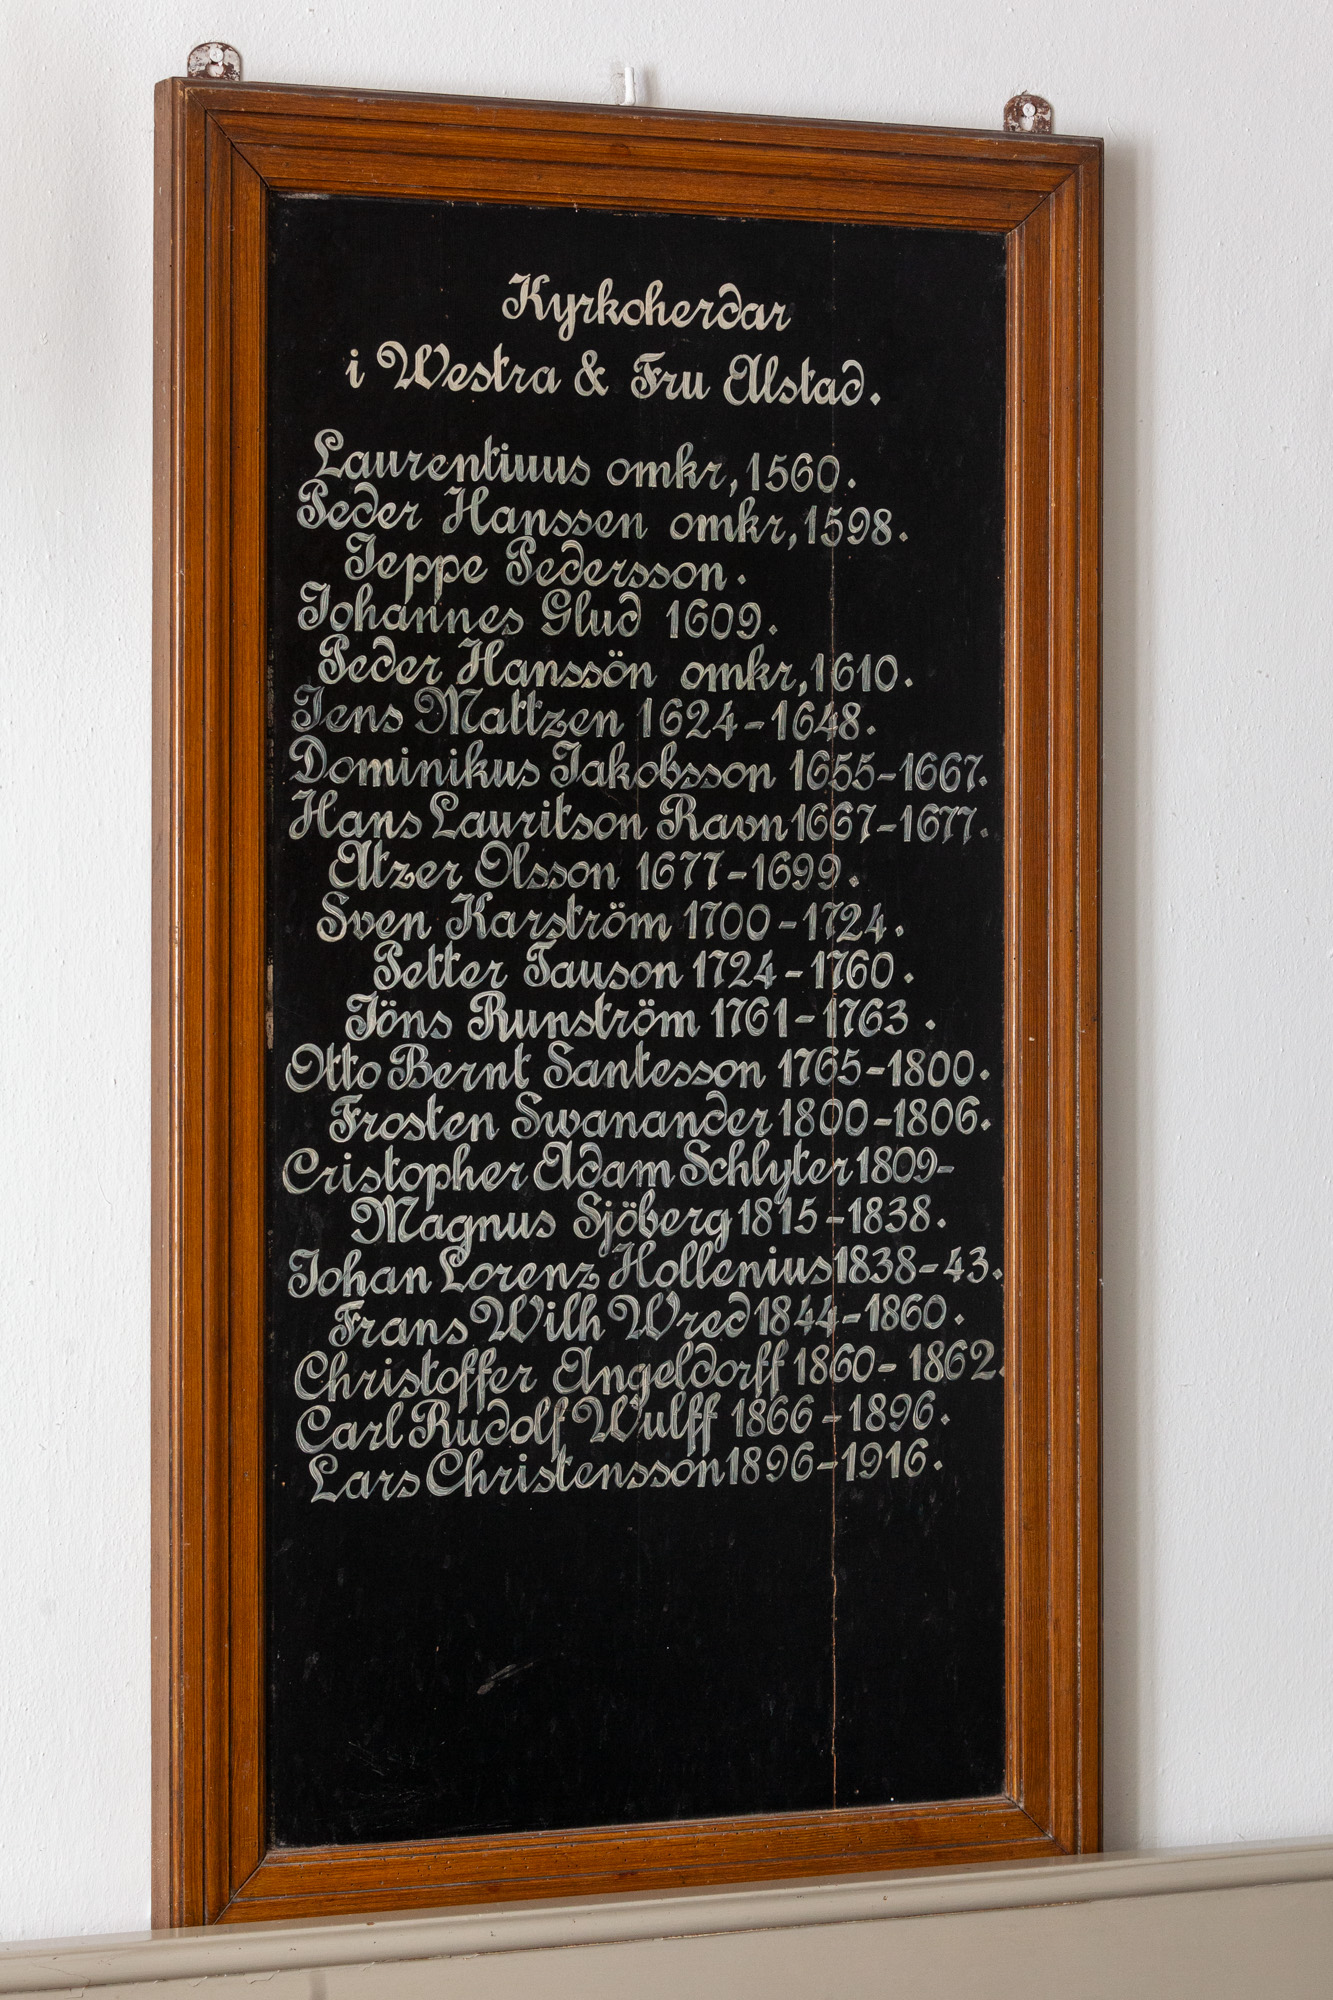 Kyrkoherdar
i Westra & Fru Alstad.
Laurentiuus omkr, 1560.
Peder Hanssen omkr, 1598.
Jeppe Pedersson.
Johannes Glud 1609.
Peder Hanssön omkr, 1610.
Jens Mattzen 1624-1648.
Dominikus Jakobsson 1655-1667.
Hans Lauritson Ravn 1667-1677.
Atzer Olsson 1677-1699.
Sven Karström 1700-1724.
Petter Tauson 1724-1760.
Jöns Runström 1761-1763.
Otto Bernt Santesson 1765-1800.
Frosten Swanander 1800-1806.
Cristopher Adam Schlyter 1809-
Magnus Sjöberg 1815-1838.
Johan Lorenz Hollenius 1838-43.
Frans Wilh Wred 1844-1860.
Christoffer Angeldorff 1860-1862.
Carl Rudolf Wulff 1866-1896.
Lars Christensson 1896-1916.